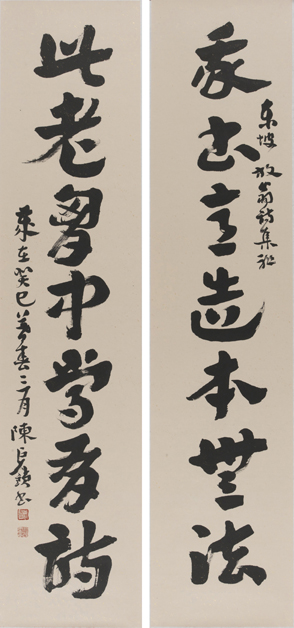 我書意造本無法
東坡放翁詩集聯
此老胸中常有詩
歲在癸巳暮春三月陳巨鎖書